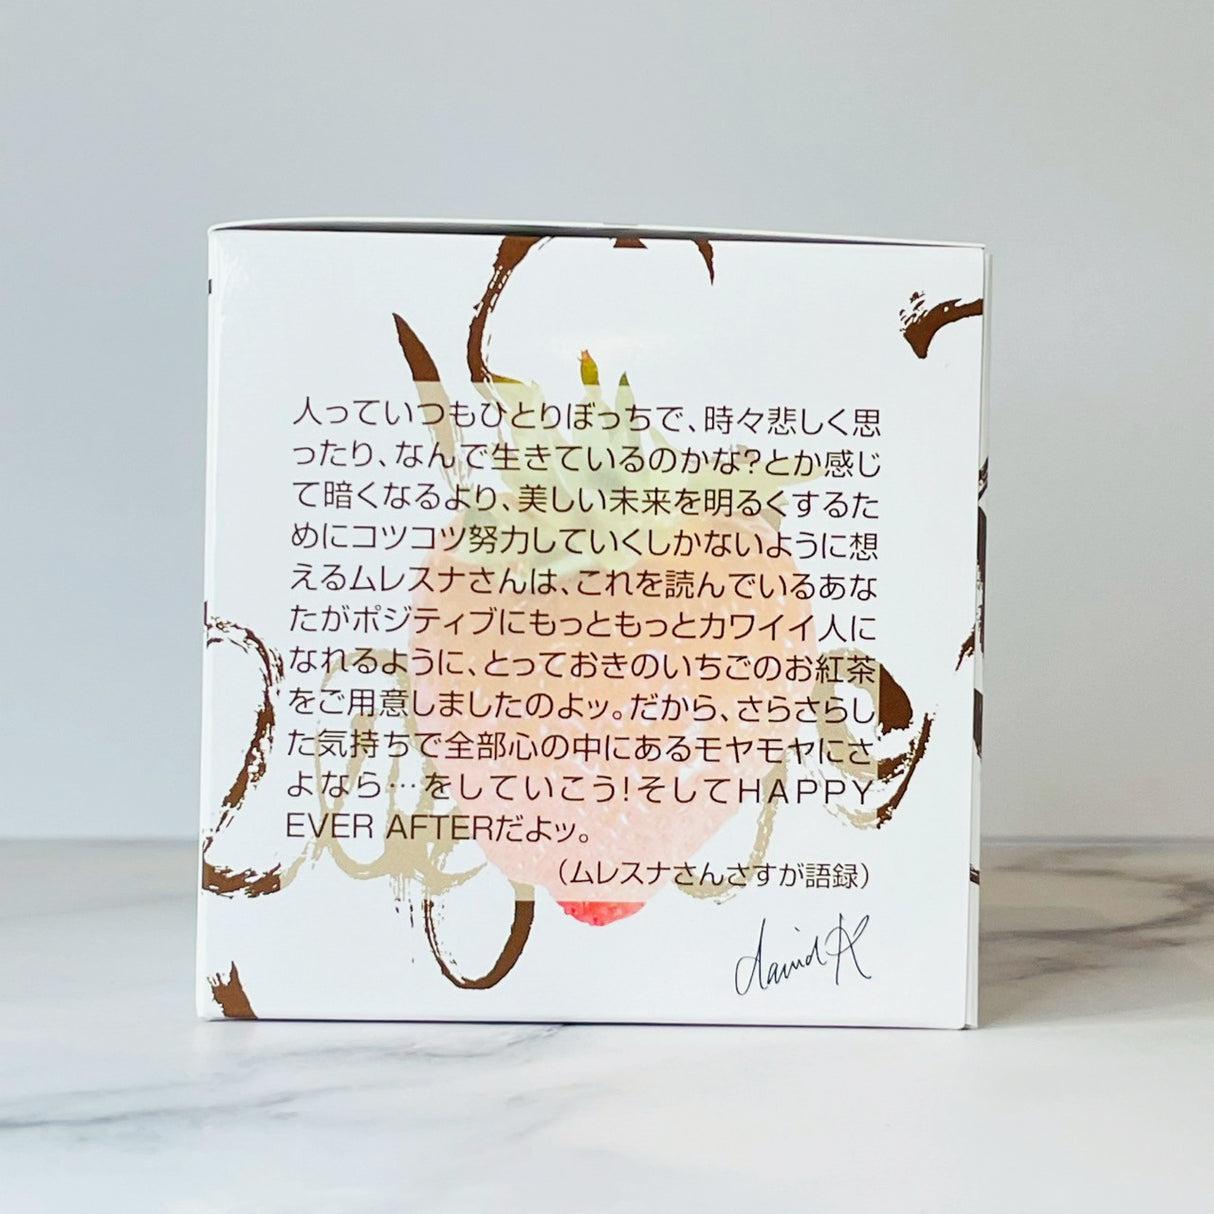 人っていつもひとりぼっちで、時々悲しく思
ったり、なんで生きているのかな?とか感じ
て暗くなるより、美しい未来を明るくするた
めにコツコツ努力していくしかないように想
えるムレスナさんは、これを読んでいるあな
たがポジティブにもっともっとカワイイ人に
なれるように、とっておきのいちごのお紅茶
をご用意しましたのよッ。だから、さらさらし
た気持ちで全部心の中にあるモヤモヤにさ
よなら…をしていこう!そしてHAPPY
EVER AFTERだよッ。
(ムレスナさんさすが語録)
david K